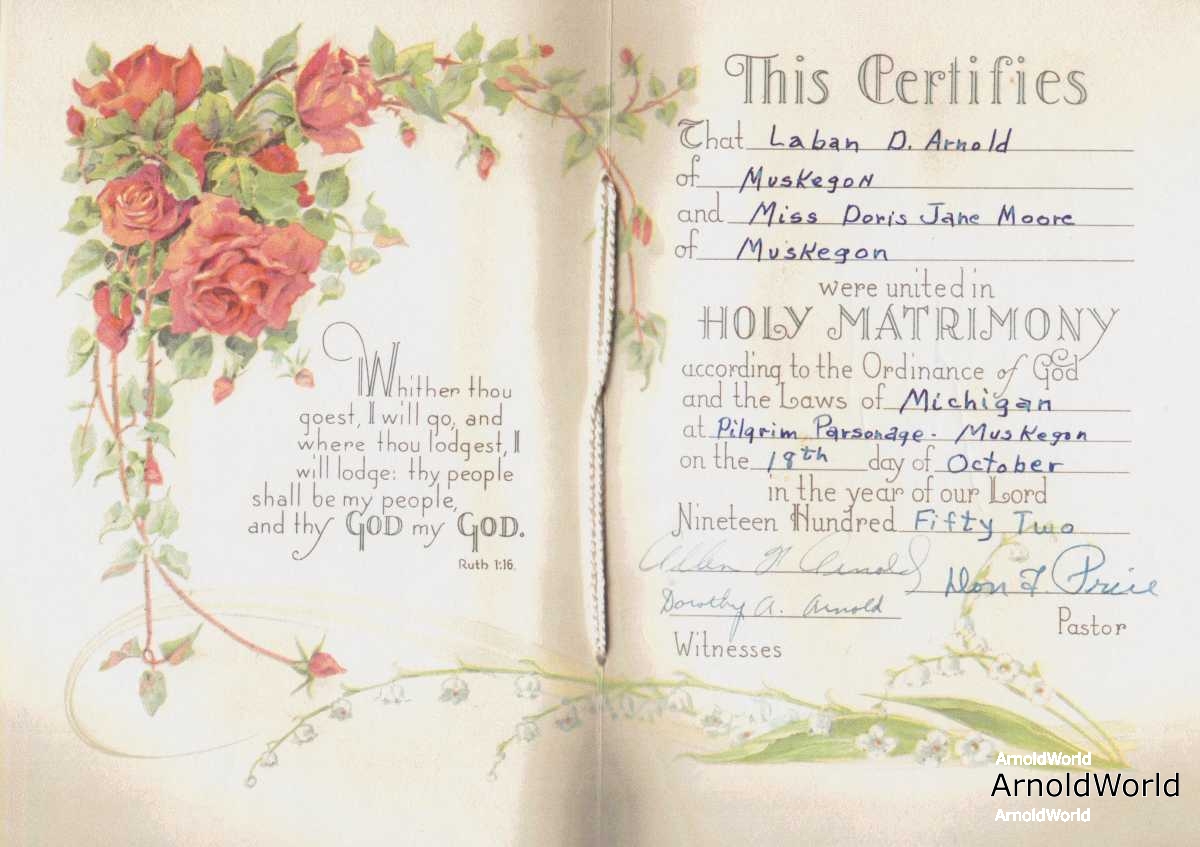 Whither thou
goest, I will go, and
where thou lodgest, I
will lodge: thy people
shall be my people,
and thy GOD my GOD.
Ruth 1:16.
This Certifies
That Laban D. Arnold
of Muskegon
and Miss Doris Jane Moore
of Muskegon
were united in
HOLY MATRIMONY
according to the Ordinance of God
and the Laws of Michigan
at Pilgrim Parsonage - Muskegon
on the 18th day of October
in the year of our Lord
Nineteen Hundred Fifty Two
Allen H Arnold
Don F. Price
Dorothy A. Arnold
Pastor
Witnesses
ArnoldWorld
ArnoldWorld
ArnoldWorld